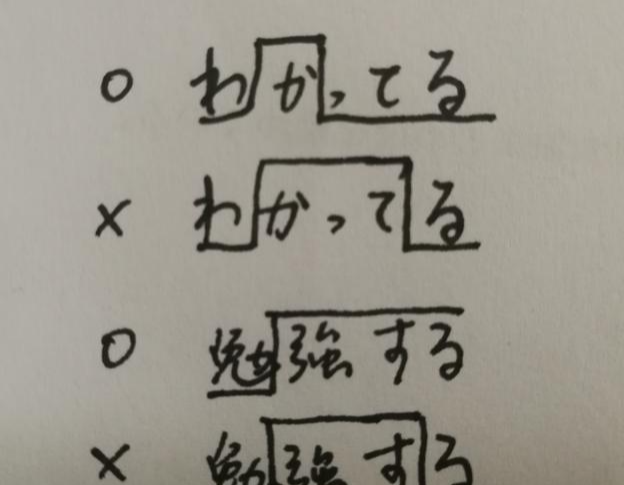 ○ わかってる
× わかってる
○ 勉強する
× 勉強する